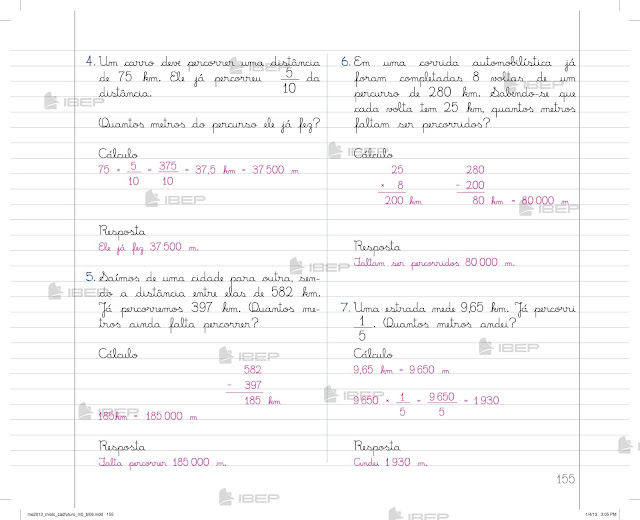 4. Um carro deve percorrer uma distância
de 75 km. Ele já percorreu 5/10 da
distância.
Quantos metros do percurso ele já fez?
Cálculo
75 × 5/10 = 375/10 = 37,5 km = 37 500 m
Resposta
Ele já fez 37 500 m.
5. Saímos de uma cidade para outra, sen-
do a distância entre elas de 582 km.
Já percorremos 397 km. Quantos me-
tros ainda falta percorrer?
Cálculo
582
− 397
185 km
185km = 185 000 m
Resposta
Falta percorrer 185 000 m.
6. Em uma corrida automobilística já
foram completadas 8 voltas de um
percurso de 280 km. Sabendo-se que
cada volta tem 25 km, quantos metros
faltam ser percorridos?
Cálculo
25 280
× 8 − 200
200 km 80 km = 80 000 m
Resposta
Faltam ser percorridos 80 000 m.
7. Uma estrada mede 9,65 km. Já percorri
1/5. Quantos metros andei?
Cálculo
9,65 km = 9 650 m
9 650 × 1/5 = 9 650/5 = 1 930
Resposta
Andei 1 930 m.
155
IBEP
IBEP
IBEP
IBEP
IBEP
IBEP
IBEP
IBEP
IBEP
IBEP
IBEP
IBEP
IBEP
1/4/13 3:05 PM